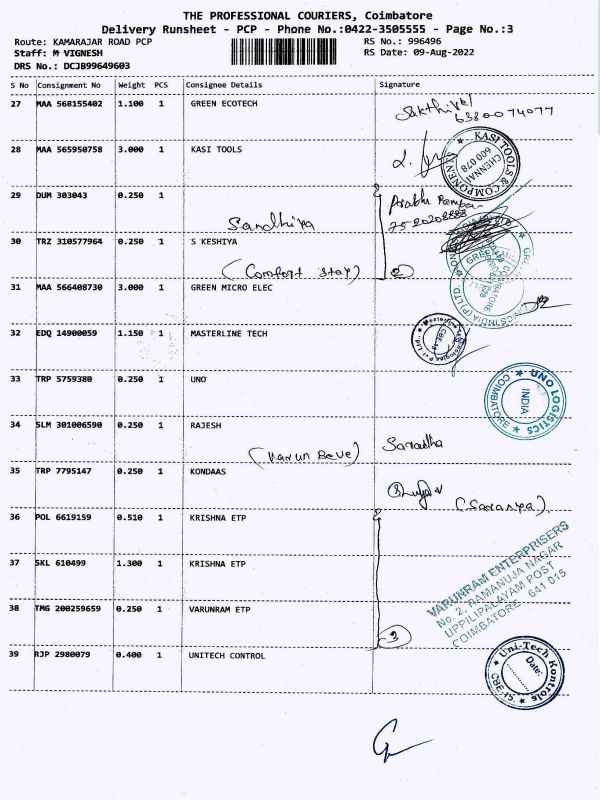 THE PROFESSIONAL COURIERS, Coimbatore
Delivery Runsheet - PCP - Phone No.:0422-3505555 - Page No.:3
Route: KAMARAJAR ROAD PCP RS No.: 996496
Staff: M VIGNESH RS Date: 09-Aug-2022
DRS No.: DCJB99649603
S No Consignment No Weight PCS Consignee Details Signature
27 MAA 568155402 1.100 1 GREEN ECOTECH
Sakthivel
6380074077
28 MAA 565950758 3.000 1 KASI TOOLS
KASI TOOLS & COMPONENTS
CHENNAI
600 078
29 DUM 303043 0.250 1
Prabhu
Sandhiya
30 TRZ 310577964 0.250 1 S KESHIYA
(Comfort stay) 2
31 MAA 566408730 3.000 1 GREEN MICRO ELEC
COIMBATORE
32 EDQ 14900059 1.150 1 MASTERLINE TECH
CBE-15
33 TRP 5759380 0.250 1 UNO
UNO LOGISTICS
INDIA
COIMBATORE
34 SLM 301006590 0.250 1 RAJESH
Saradha
35 TRP 7795147 0.250 1 KONDAAS
(Saranya)
36 POL 6619159 0.510 1 KRISHNA ETP
37 SKL 610499 1.300 1 KRISHNA ETP
VARUNRAM ENTERPRISERS
No. 2, RAMANUJA NAGAR
UPPILIPALAYAM POST
COIMBATORE 641 015
38 TMG 200259659 0.250 1 VARUNRAM ETP
3
39 RJP 2980079 0.400 1 UNITECH CONTROL
Uni-Tech Kontrols
Date:
CBE-15.